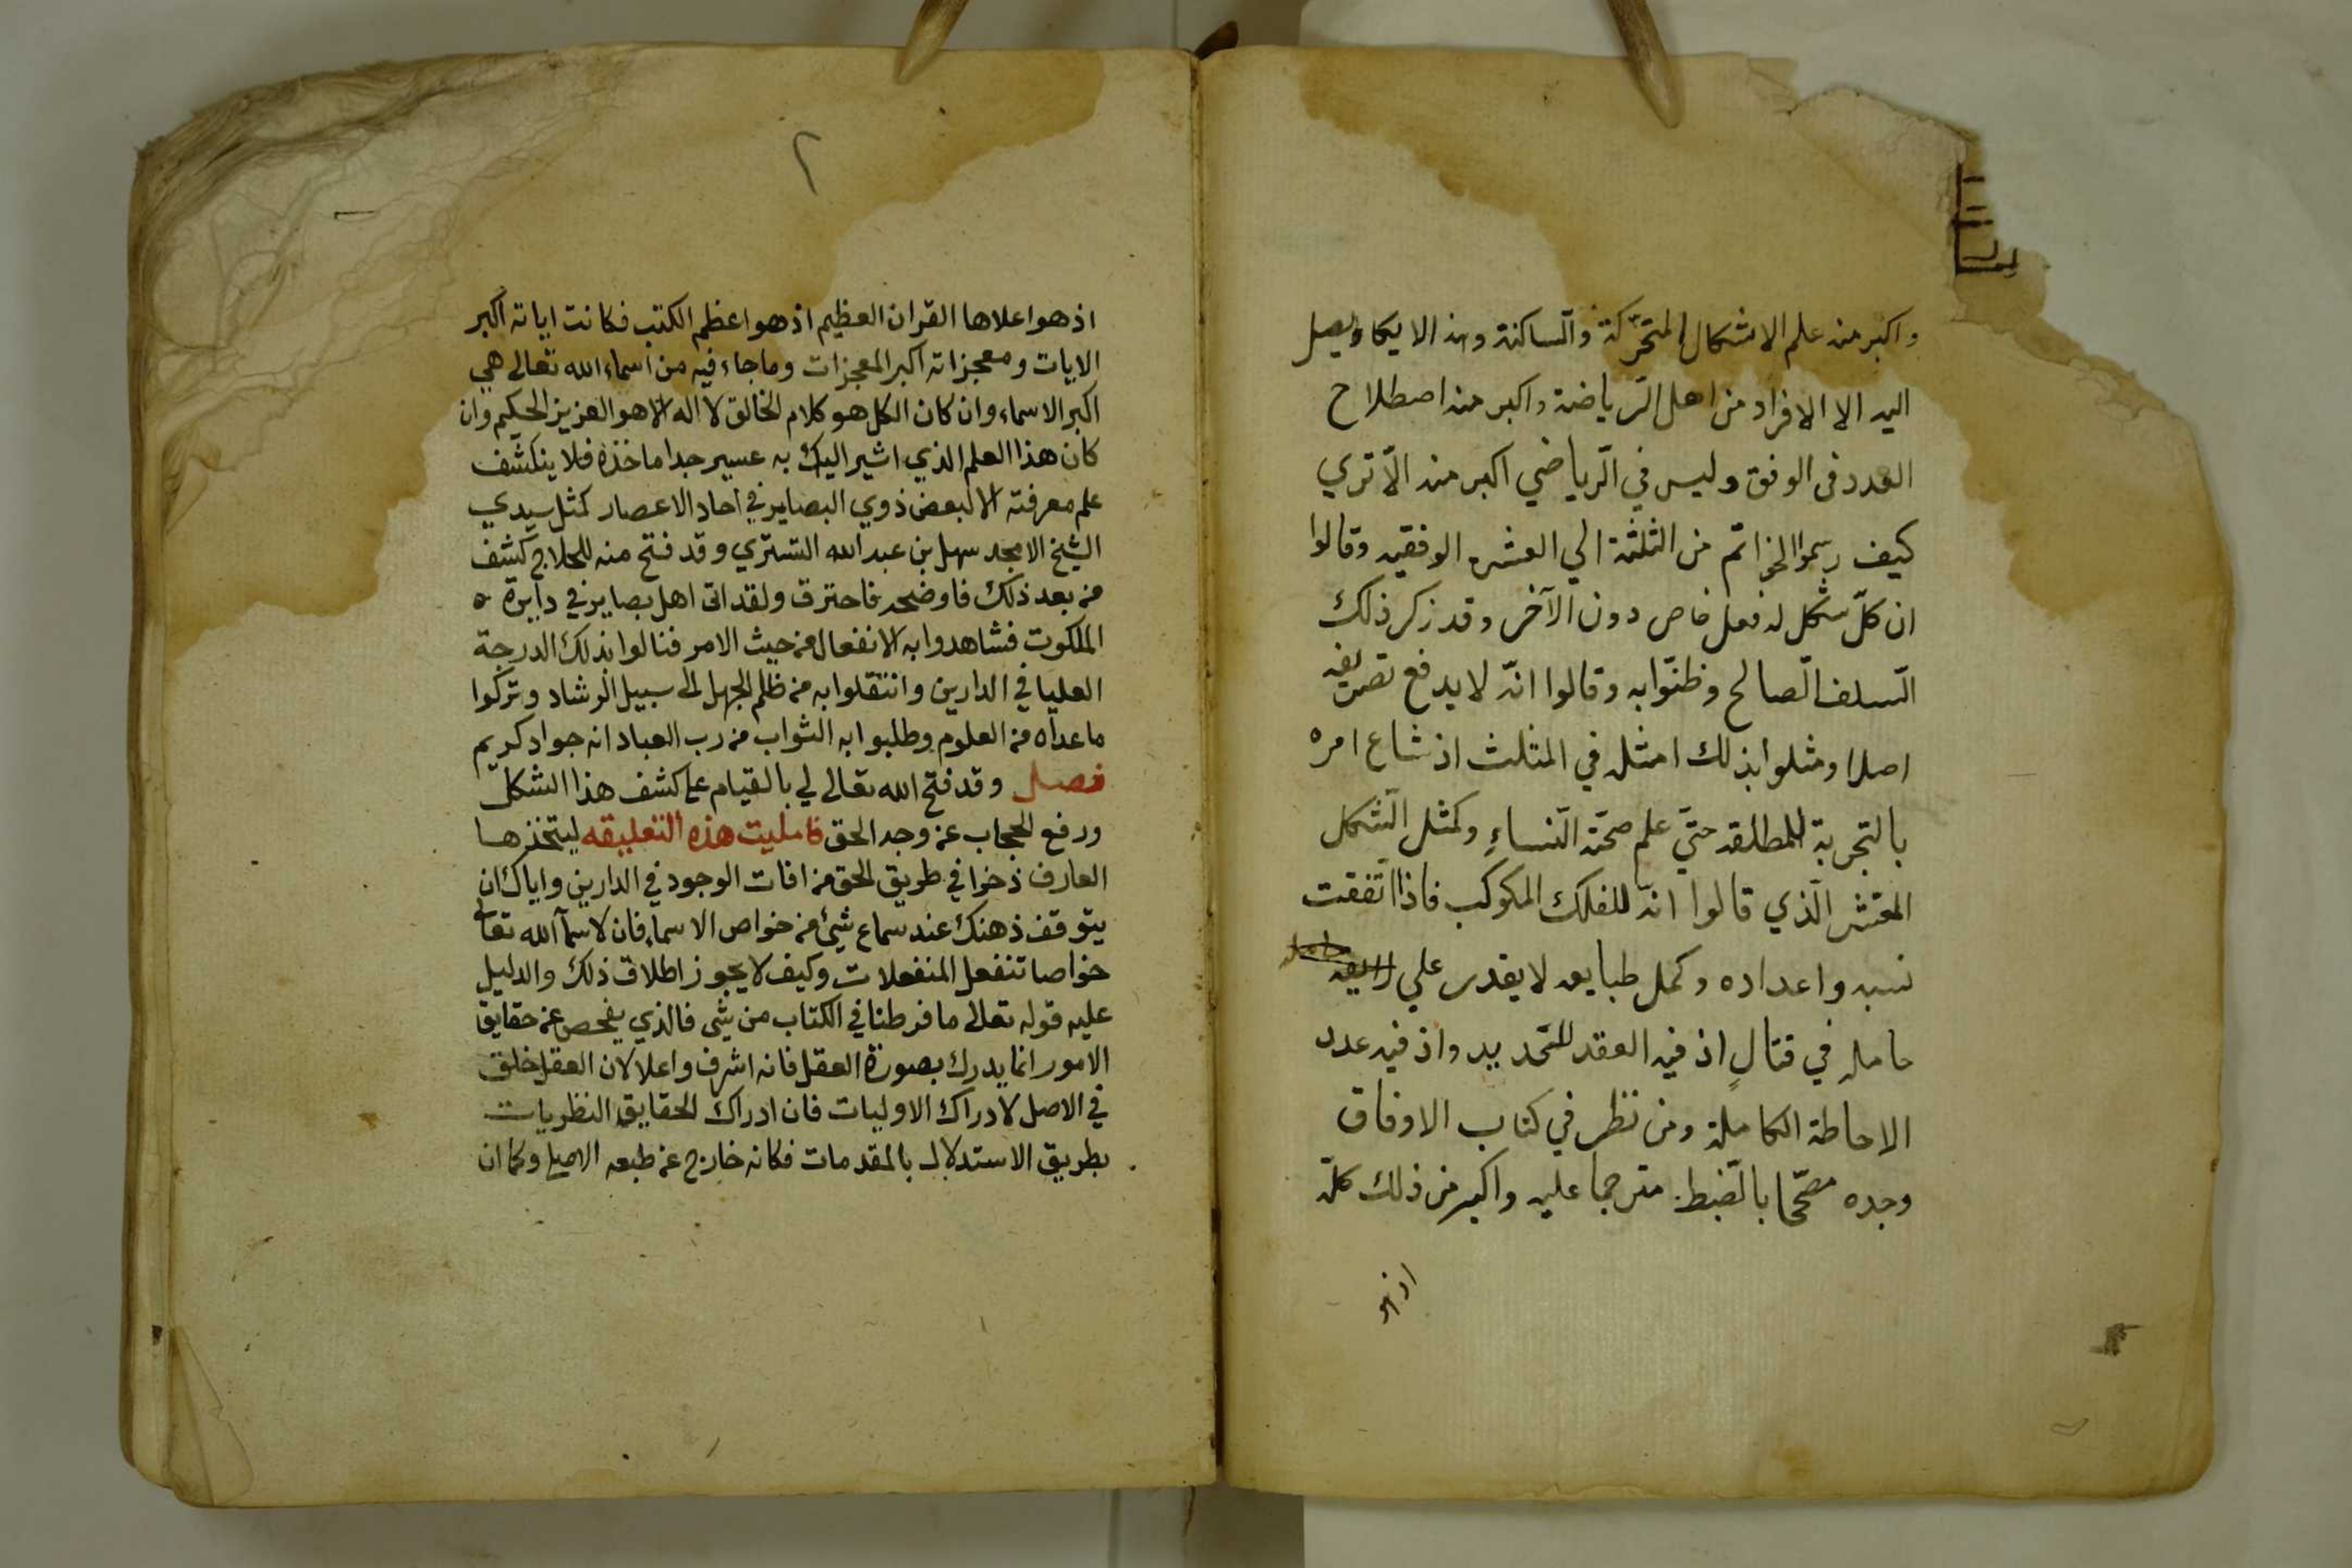 واكبر منه علم الاشكال المتحركة والساكنة وهذا لا يكاد يصل
اليه الا الافراد من اهل الرياضة واكبر منه اصطلاح
العدد في الوفق وليس في الرياضي اكبر منه الا تري
كيف رسموا الخواتم من الثلثة الي العشره الوفقيه وقالوا
ان كلّ شكل له فعل خاص دون الآخر وقد زكر ذلك
السلف الصالح وظنّوا به وقالوا انّه لا يدفع تصريفه
اصلا ومثلوا بذلك امثله في المثلث اذ شاع امره
بالتجربة للمطلقه حتيّ علم صحّة النساءِ وكمثل الشكل
المعشر الّذي قالوا انّه للفلك المكوكب فاذا اتفقت
نسبه واعداده وكمل طبايعه لا يقدر علي
حامله في قتالٍ اذ فيه العقد للتحديد واذ فيه عدد
الاحاطة الكاملة ومن نظر في كتاب الاوفاق
وجده مصحّحا بالضبط مترجما عليه واكبر من ذلك كلّه
اذ هو
٢
اذ هو اعلاها القران العظيم اذ هو اعظم الكتب فكانت اياته اكبر
الايات ومعجزاته اكبر المعجزات وما جاء فيه من اسماء الله تعالى هي
اكبر الاسماء وان كان الكل هو كلام الخالق لا اله الا هو العزيز الحكيم وان
كان هذا العلم الذي اشير اليك به عسير جدا ماخذه فلا ينكشف
علم معرفته الا لبعض ذوي البصاير في احاد الاعصار كمثل سيدي
الشيخ الامجد سهل بن عبد الله التستري وقد فتح منه للحلاج كشف
من بعد ذلك فاوضحه فاحترق ولقد اتى اهل بصاير في دايرة
الملكوت فشاهدوا به الانفعال من حيث الامر فنالوا بذلك الدرجة
العليا في الدارين وانتقلوا به من ظلم الجهل الى سبيل الرشاد وتركوا
ما عداه من العلوم وطلبوا به الثواب من رب العباد انه جواد كريم
فصل وقد فتح الله تعالى لي بالقيام على كشف هذا الشكل
ورفع الحجاب عن وجه الحق فامليت هذه التعليقه ليتخذها
العارف ذخرا في طريق الحق من افات الوجود في الدارين واياك ان
يتوقف ذهنك عند سماع شيء من خواص الاسماء فان لاسماء الله تعالى
خواصا تنفعل المنفعلات وكيف لا يجوز اطلاق ذلك والدليل
عليه قوله تعالى ما فرطنا في الكتاب من شى فالذي يفحص عن حقايق
الامور انما يدرك بصورة العقل فانه اشرف واعلا لان العقل خلق
في الاصل لادراك الاوليات فان ادراك الحقايق النظريات
بطريق الاستدلال بالمقدمات فكانه خارج عن طبعه الاصلي وكما ان